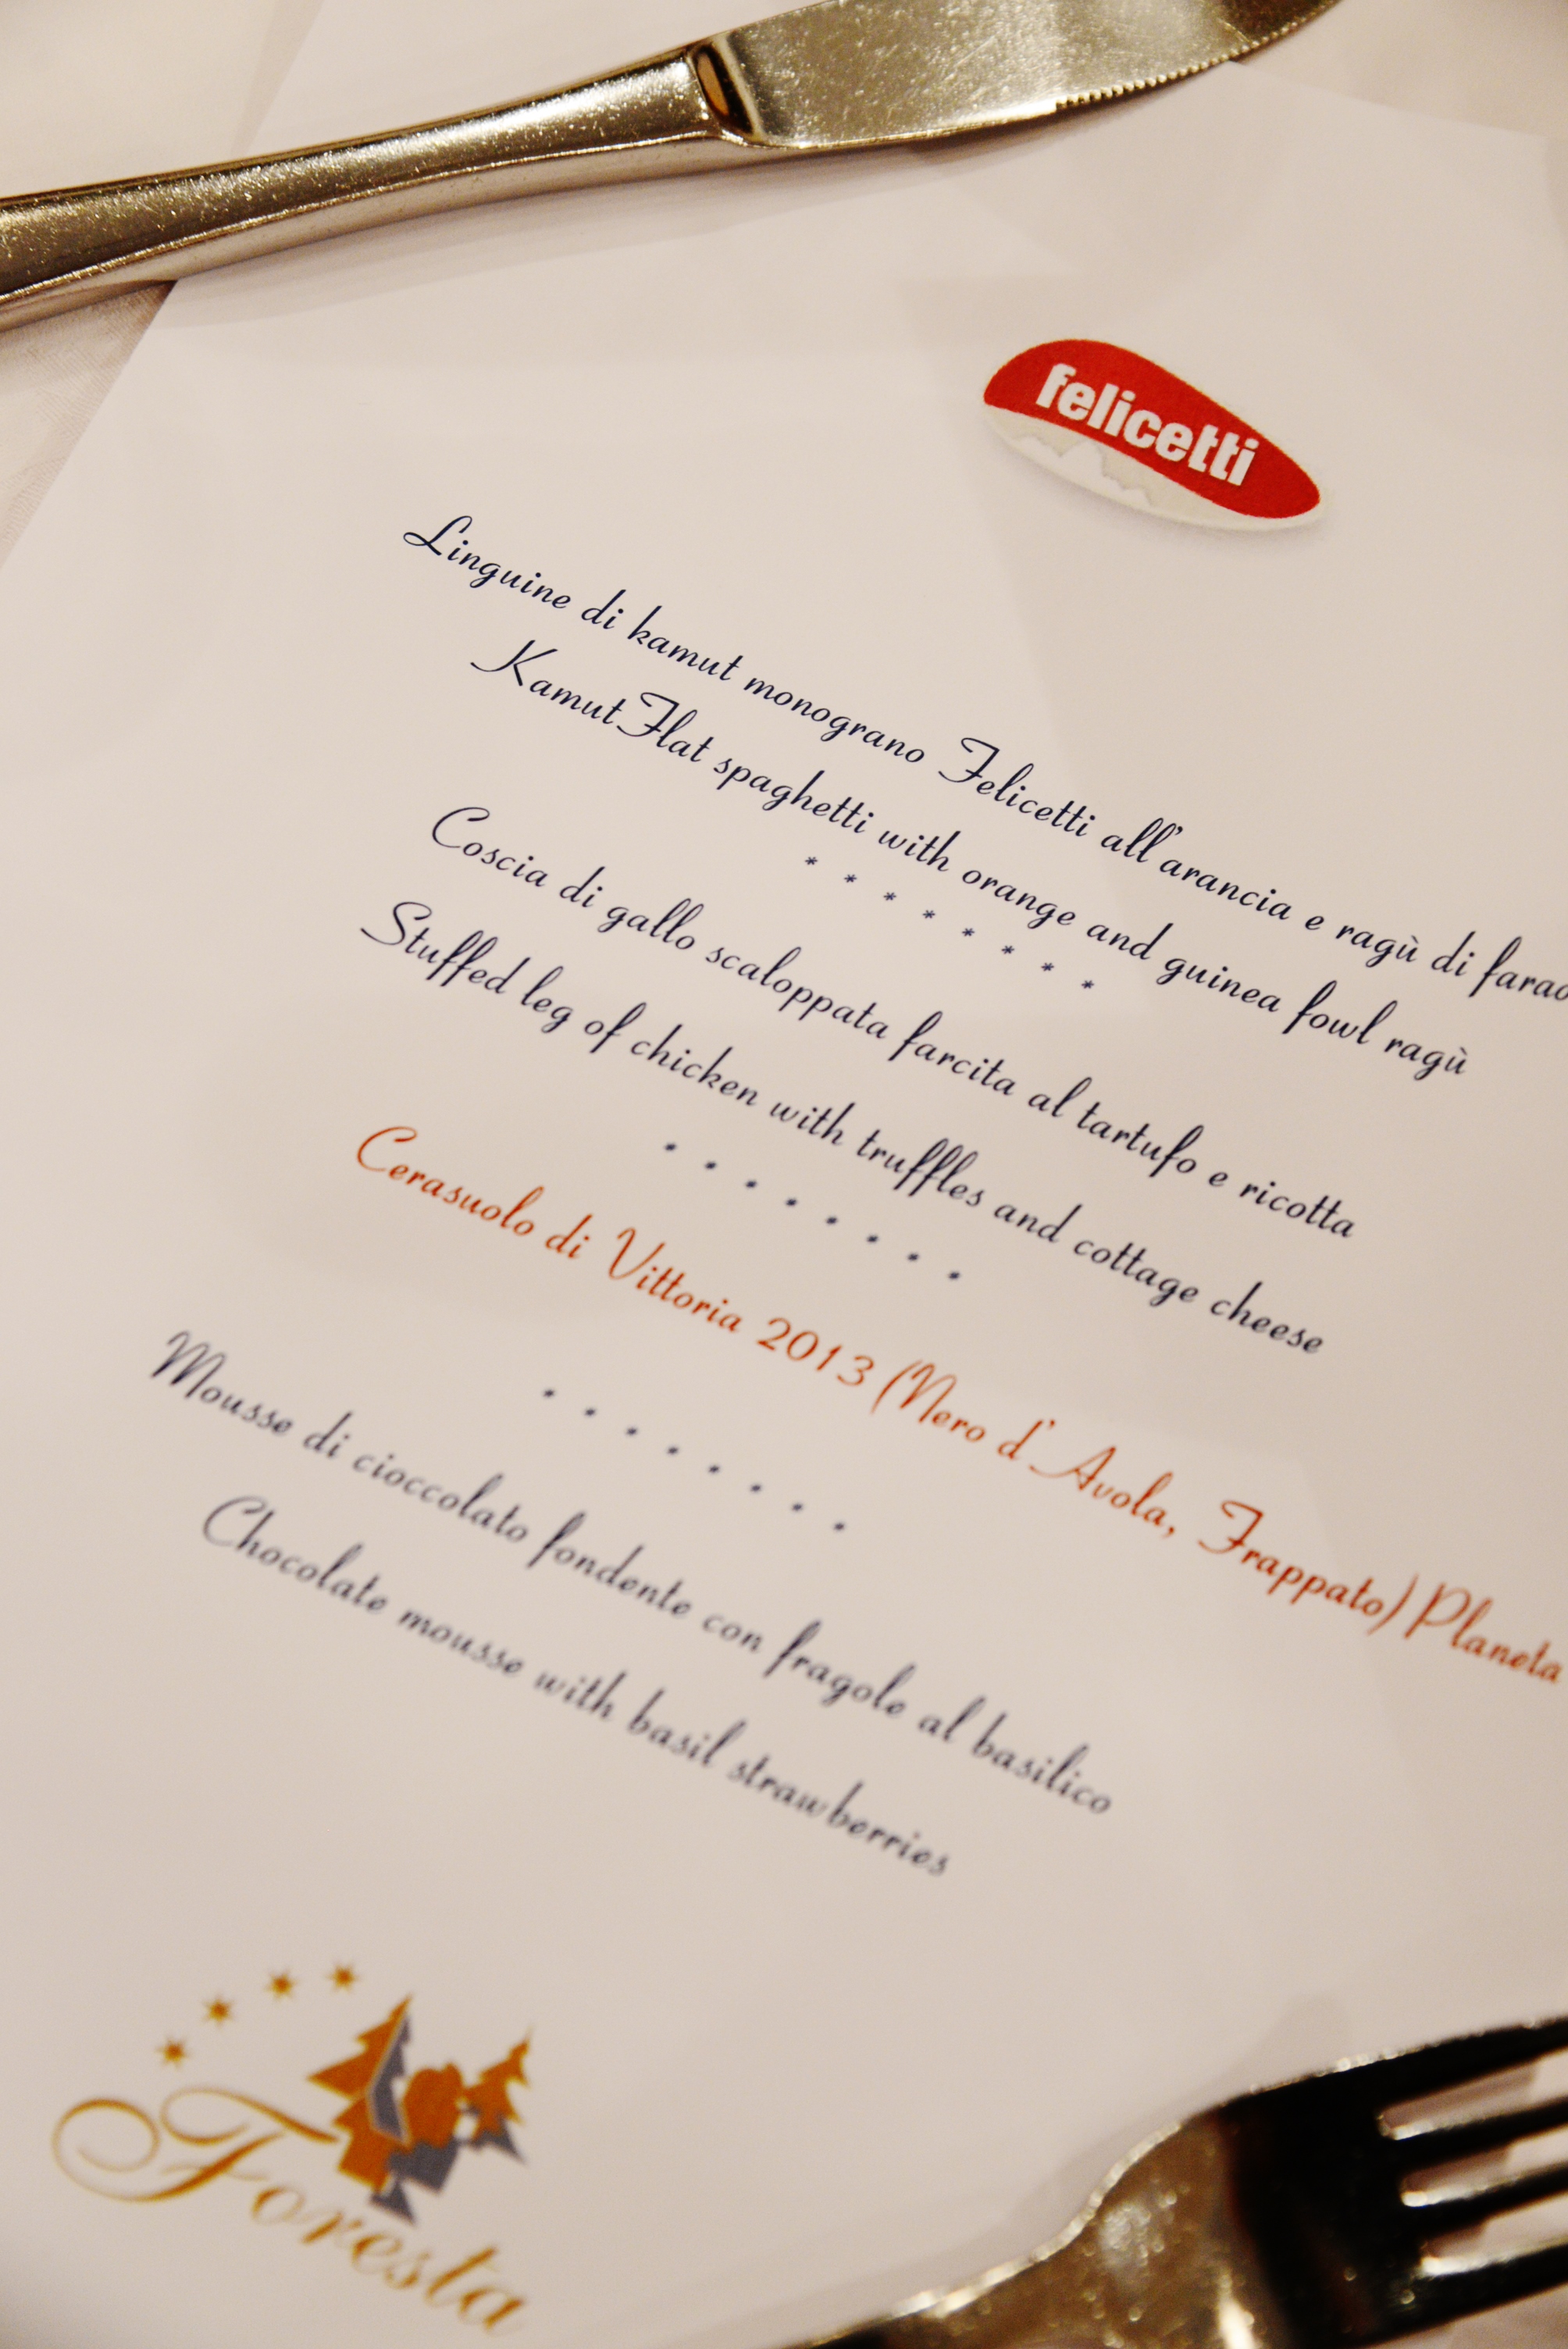 felicetti
Linguine di kamut monograno Felicetti all'arancia e ragù di farao
Kamut Flat spaghetti with orange and guinea fowl ragù
* * * * * * * *
Coscia di gallo scaloppata farcita al tartufo e ricotta
Stuffed leg of chicken with truffles and cottage cheese
* * * * * * * *
Cerasuolo di Vittoria 2013 (Nero d'Avola, Frappato) Planeta
* * * * * * * *
Mousse di cioccolato fondente con fragole al basilico
Chocolate mousse with basil strawberries
Foresta